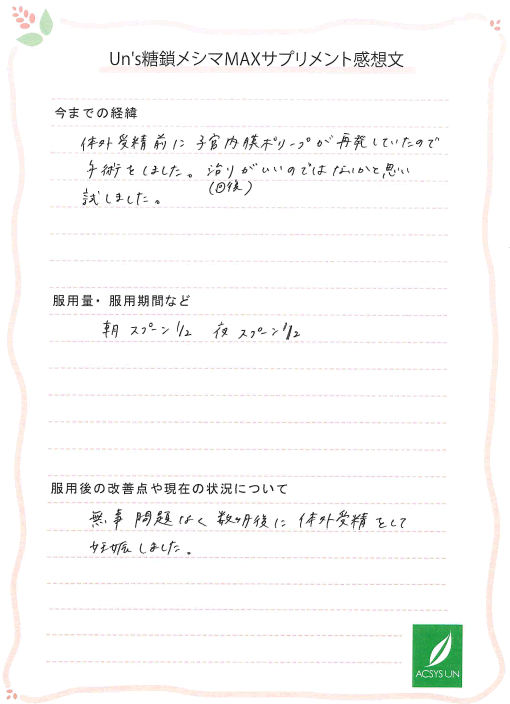 Un's糖鎖メシマMAXサプリメント感想文
今までの経緯
体外受精前に子宮内膜ポリープが再発していたので
手術をしました。治りがいいのではないかと思い
(回後)
試しました。
服用量・服用期間など
朝 スプーン1/2 夜 スプーン1/2
服用後の改善点や現在の状況について
無事問題なく数ヶ月後に体外受精をして
妊娠しました。
ACSYS UN